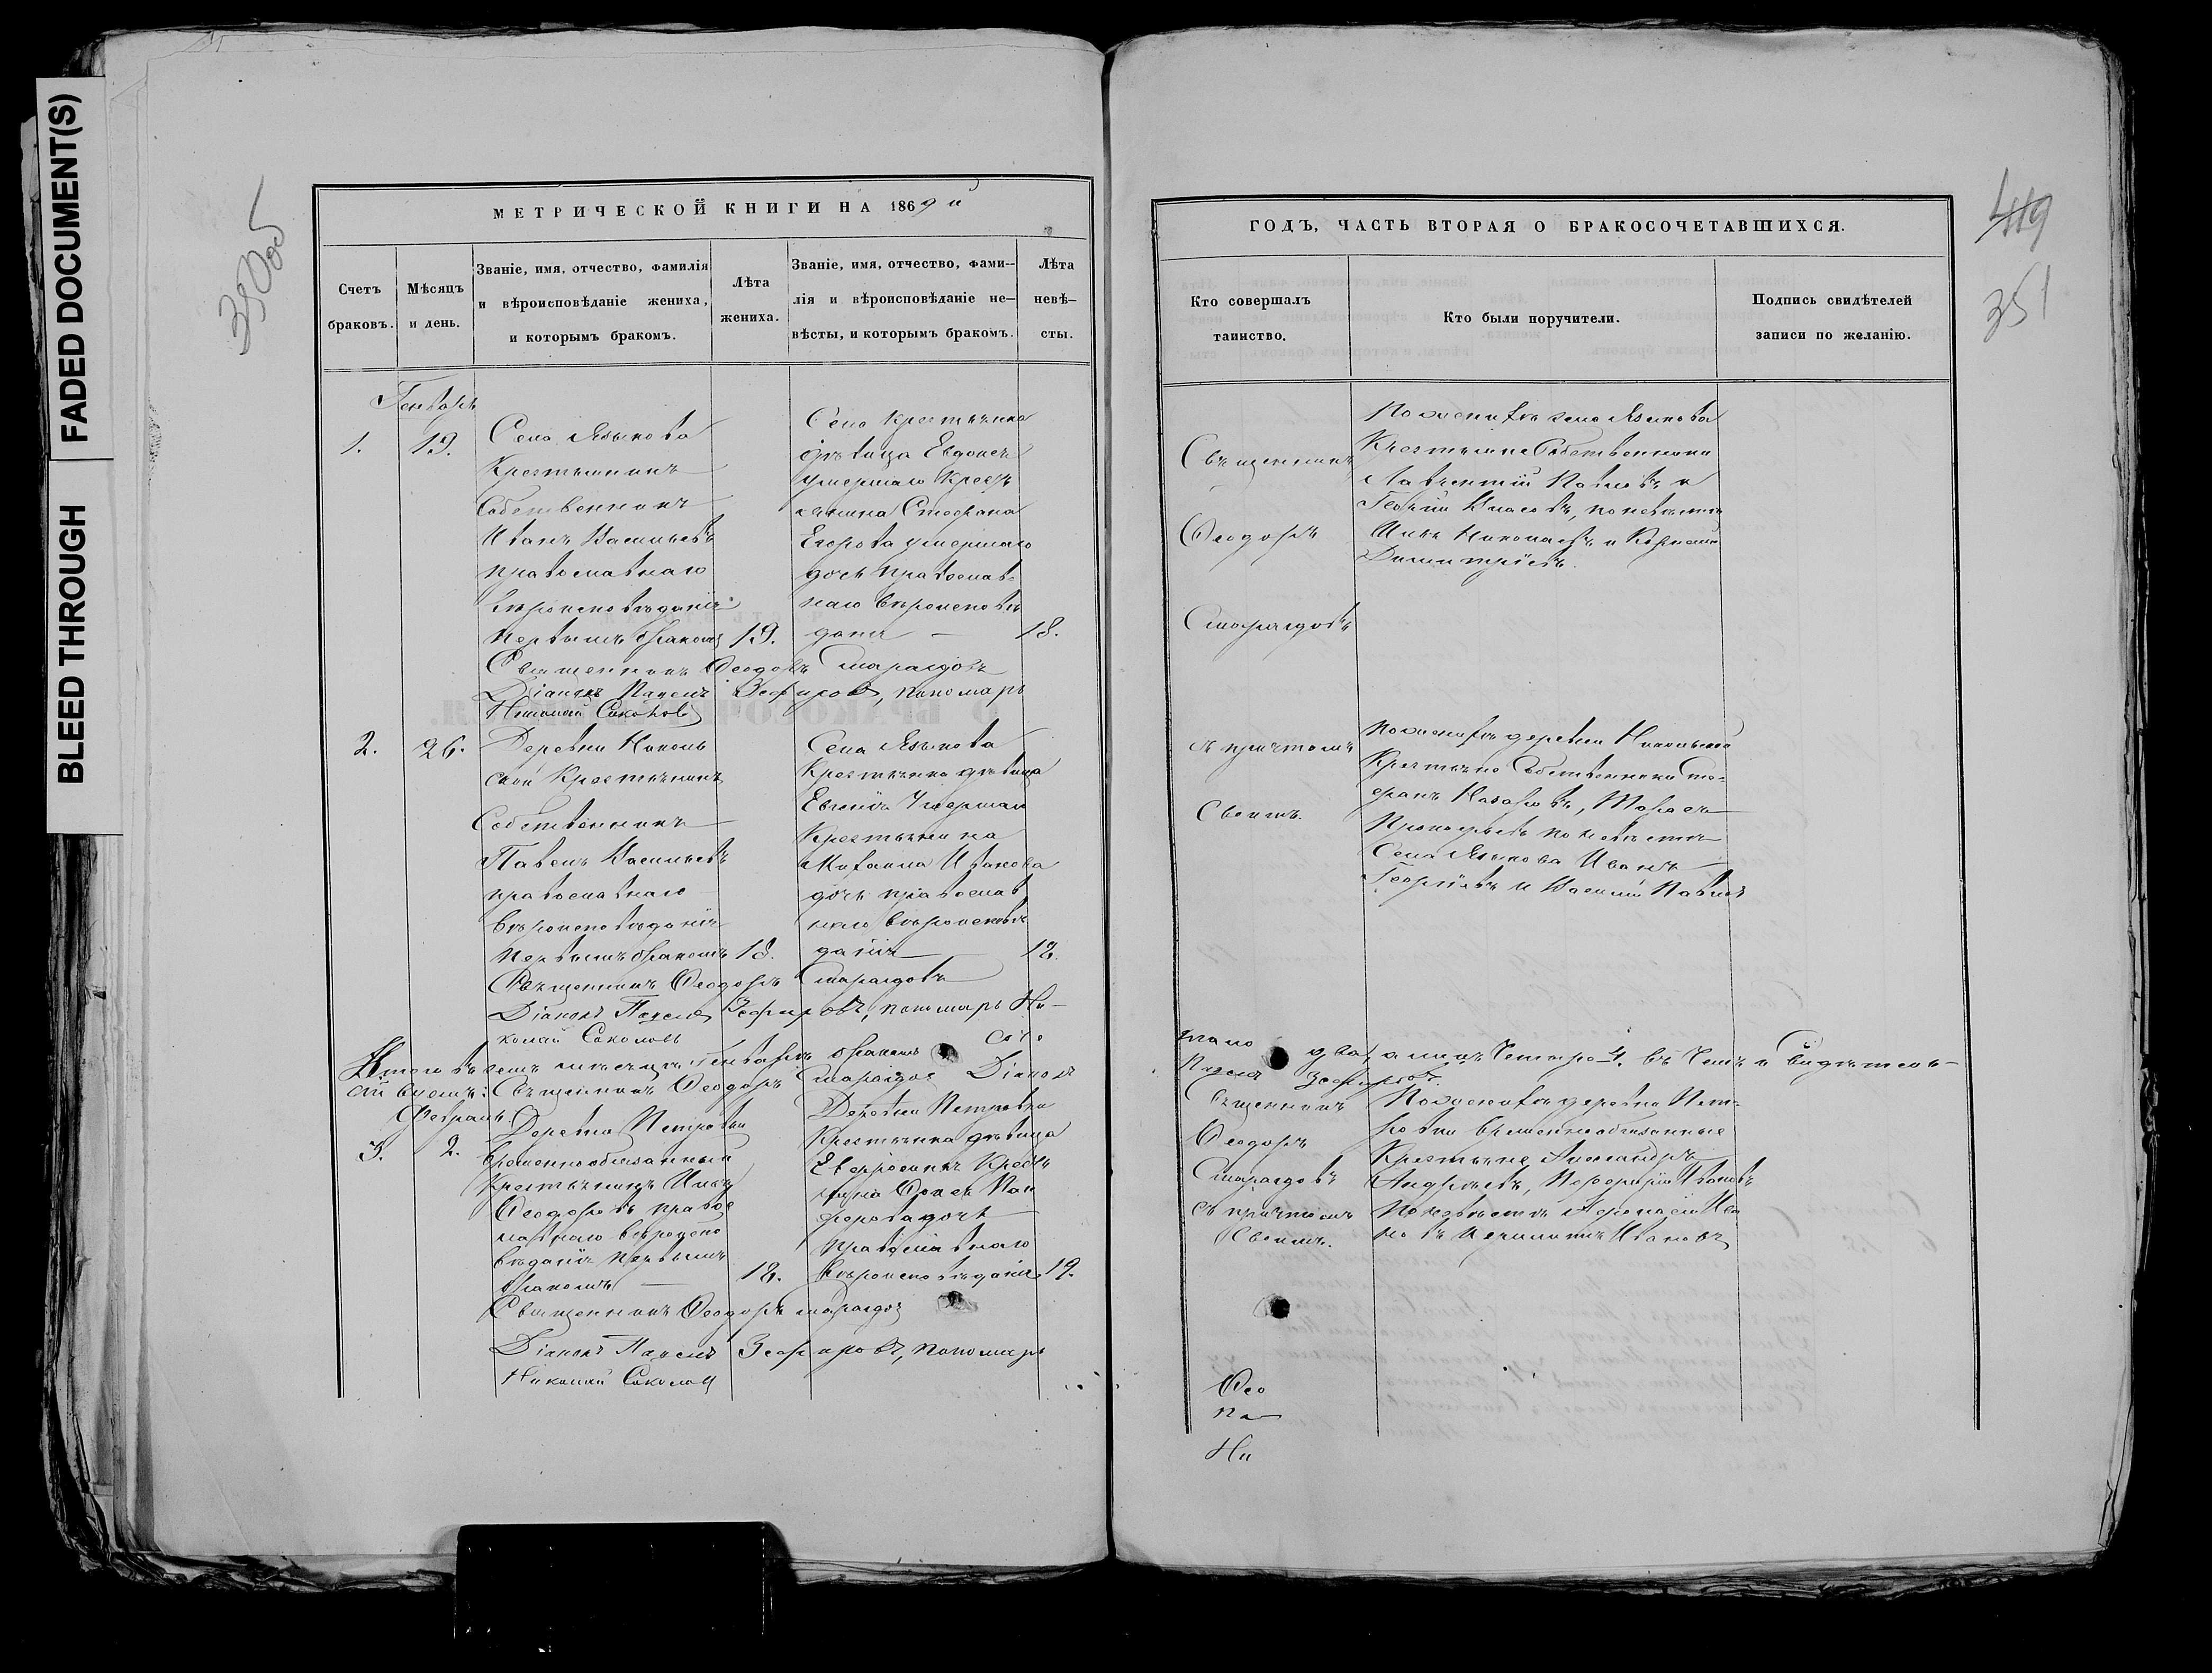 BLEED THROUGH
FADED DOCUMENT(S)
350об
МЕТРИЧЕСКОЙ КНИГИ НА 1869 й
Счетъ
браковъ.
Мѣсяцъ
и день.
Званіе, имя, отчество, фамилія
и вѣроисповѣданіе жениха,
и которымъ бракомъ.
Лѣта
жениха.
Званіе, имя, отчество, фами—
лія и вѣроисповѣданіе не—
вѣсты, и которымъ бракомъ.
Лѣта
невѣ—
сты.
Генварь
1.
19.
Села Языкова
Крестьянинъ
Собственникъ
Иванъ Васильевъ
православнаго
вѣроисповѣданія
первымъ бракомъ
19.
Села Крестьянка
дѣвица
умершаго Крест
янина Стефана
Егорова умершаго
дочь православ
наго вѣроисповѣ
данія
18.
Священникъ Ѳеодоръ Смарагдовъ
Діаконъ Павелъ Зефировъ, пономарь
Николай Соколовъ
2.
26.
Деревни Николь
ской Крестьянинъ
Собственникъ
Павелъ Васильевъ
православнаго
вѣроисповѣданія
первымъ бракомъ
18.
Села Языкова
Крестьянка дѣвица
Евгенія Умершаго
Крестьянина
Ивакова
дочь православ
наго вѣроисповѣ
данія
18.
Священникъ Ѳеодоръ Смарагдовъ
Діаконъ Павелъ Зефировъ, пономарь Ни—
колай Соколовъ
Итого въ семъ мѣсяцѣ Генварѣ браковъ
Священникъ Ѳеодоръ Смарагдов Діаконъ
Февраль
3.
2.
Деревни Петровки
временнообязанный
Крестьянинъ Илья
Ѳеодоровъ право
славнаго вѣроиспо
вѣданія первымъ
бракомъ
18.
Деревни Петровки
Крестьянка дѣвица
Евфросинія Крестья
нина
ферова дочь
православнаго
вѣроисповѣданія
19.
Священникъ Ѳеодоръ Смарагдов
Діаконъ Павелъ Зефировъ, пономарь
Николай Соколовъ
ГОДЪ, ЧАСТЬ ВТОРАЯ О БРАКОСОЧЕТАВШИХСЯ.
419
351
Кто совершалъ
таинство.
Кто были поручители.
Подпись свидѣтелей
записи по желанію.
Священникъ
Ѳеодоръ
Смарагдовъ
съ причтомъ
своимъ.
По женихѣ села Языкова
Крестьяне Собственники
Лаврентій Павловъ и
Георгій Власовъ, по невѣстѣ
Илья Николаевъ и Корнилій
Димитріевъ.
По женихѣ деревни Никольской
Крестьяне Собственники Сте—
фанъ Назаровъ,
Прокофьевъ по невѣстѣ
Села Языкова Иванъ
Георгіевъ и Василій Павловъ
два, а лицъ Четыре 4. въ Чемъ и свидѣтель—
Павелъ Зефировъ.
Священникъ
Ѳеодоръ
Смарагдовъ
съ причтомъ
своимъ.
По женихѣ деревни Пет—
ровки временнообязанные
Крестьяне Александръ
Андреевъ, Ивановъ
по невѣстѣ Ива
новъ и Ивановъ
Ѳео
Па
Ни